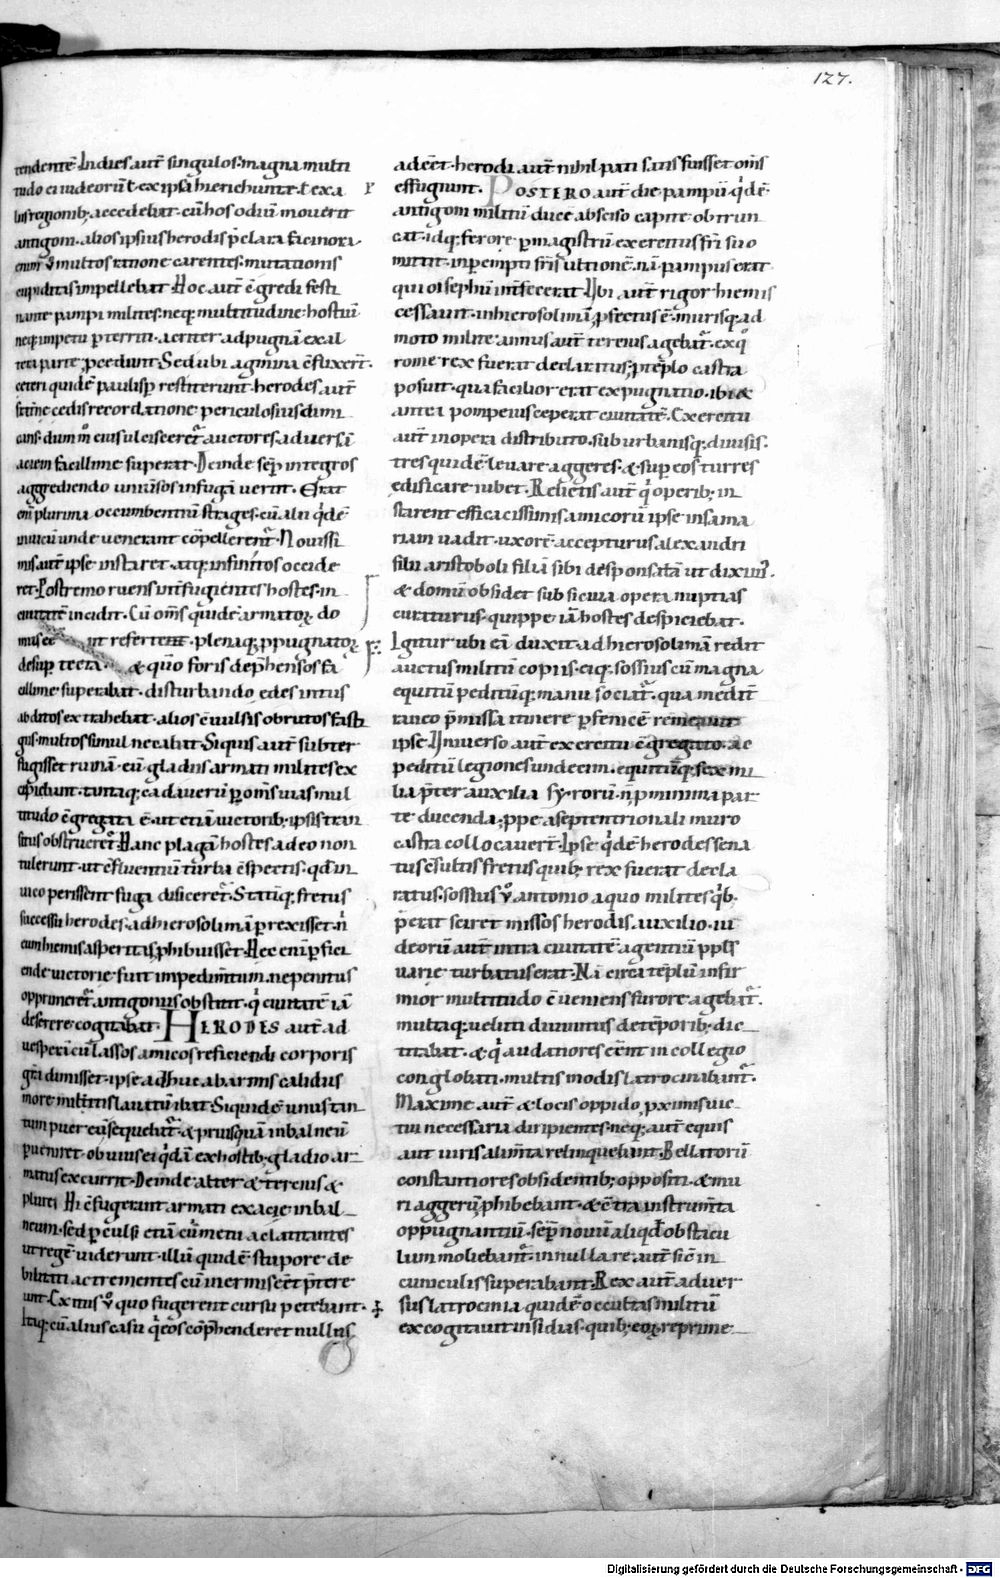 127.
tendentē. Indies aut̄ singulos. magna multi
tudo ei iudeorū. t̄ ex ipsa hierichunte. t̄ exa
liis regionib; accedebat. cū hos odiū moverit
antigoni. alios ipsius herodis p̄clara facinora.
enim v̊ multos ratione carentes. mutationis
cupiditas impellebat. Hoc aut̄ c̄gredi festi
nante pampi milites. neq; multitudine hostiū
neq; impetu p̄territi. acriter ad pugnā ex al
tera parte p̄cedunt. Sed ubi agmina c̄fuxerī.
ceteri quidē paulisp̄ restiterunt. herodes aut̄
fr̄ne cedis recordatione. periculosius dimi
cans. dum m̊ eius ulcisceretᷣ auctores adversā
aciem facillime superat. Deinde sēp integros
aggrediendo univsos in fugā vertit. Erat
enī plurima occumbentiū strages. cū alii q̇dē
in vicū unde venerant cōpellerentᷣ. Novissi
mis aut̄ ipse instaret. atq; infinitos occide
ret. Postremo ruens int̄ fugientes hostes. in
civitatē incidit. Cū oms̄ quidē armatoꝝ do
mus eēnt referte. plenaq; ppugnatoꝝ
desup tecta. & quō foris dephensos fa
cillime superabat. disturbando edes intus
abditos extrahebat. alios c̄vulsis obrutos fasti
giis. multos simul necabat. Siquis aut̄ subter
fugisset ruinā. eū gladiis armati milites ex
cipiebant. tantaq; cadaverū p̄ oms̄ vias mul
titudo c̄gregata ē. ut etiā victorib; ipsis tran
situs obstrueretᷣ. Hanc plagā hostes adeo non
tulerunt. ut c̄fluentiū turba c̄spectis. qd̄ in
vico perissent fuga disiceretᷣ. Statiq; fretus
successu herodes. ad hierosolimā prexisset. n̄
eum hiemis asperitas phibuisset. Hec eni perfici
ende victorie fuit impedimtum. ne penitus
opprimeretᷣ antigonus obstitit. q̇ civitatē iā
deserere cogitabat. HERODES aut̄ ad
vesperā cū lassos amicos reficiendi corporis
gr̄a dimisset. ipse adhuc ab armis calidus
more militis lavatū ibat. Siquidē unus tan
tum puer eū sequebatᷣ. & priusquā in balneū
pveniret. obvius ei q̇dā ex hostib; gladio ar
matus excurrit. Deinde alter & tercius &
plures. Hi c̄fugerant armati ex acie in bal
neum. sed pculsi etiā cū metu ac latitantes
ut regē viderunt. illū quidē stupore de
bilitati ac trementes cū inermis eēt p̄tere
unt. Exitus v̊ quo fugerent cursu petebant.
Itaq; cū alius casu q̇ eos cōphenderet nullus
adeēt. herodi aut̄ nihil pati satis fuisset oms̄
effugiunt. POSTERO aut̄ die pampū q̇dē
antigoni militū ducē absciso capite obtrun
cat. idq; ferore p̄ magistrū exercitus fr̄i suo
mittit. in perempti fr̄is ultionē. nā pampus erat
qui oisephū int̄fecerat. Ubi aut̄ rigor hiemis
cessavit. in hierosolimā pfectus ē. murisq; ad
moto milite. annus aut̄ tercius agebatᷣ. ex q̊
rome rex fuerat declaratus. p̄ tēplo castra
posuit. qua facilior erat expugnatio. ibi &
antea pompeius ceperat civitatē. Exercitu
aut̄ in opera distributo. suburbanisq; divisis.
tres quidē levare aggeres. & sup eos turres
edificare iubet. Relictis aut̄ q̇ operib; in
starent efficacissimis amicorū ipse in sama
riam vadit. uxorē accepturus alexandri
filii aristoboli filiā sibi desponsatā ut diximꝰ.
& domū obsidet sub siciva opera nuptias
curaturus. quippe iā hostes despiciebat.
Igitur ubi eā duxit ad hierosolimā redit
auctus militū copiis. eiq; sossius cū magna
equitū peditūq; manu sociatᷣ. qua medit̄
raneo p̄missa itinere p̄ fenicē remeavit
ipse. Universo aut̄ exercitu c̄gregato. ac
peditū legiones undecim. equitūq; sex mi
lia p̄ter auxilia syrorū. n̄ p minima par
te ducenda; ppe a septentrionali muro
castra collocaverī. Ipse q̇dē herodes sena
tus c̄sultis fretus quib; rex fuerat decla
ratus. sossius v̊ antonio a quo milites q̇b.
p̄erat sciret missos herodis auxilio. iu
deorū aut̄ intra civitatē agentiū ppl̄s
varie turbatus erat. Nā circa tēplū infir
mior multitudo c̄veniens furore agebatᷣ.
multaq; veluti divinitus de tēporib; dic
titabat. & q̇ audatiores eēnt in collegio
conglobati. multis modis latrocinabantᷣ.
Maxime aut̄ & locis oppido pximis vic
tui necessaria diripientes. neq; aut̄ equis
aut viris alimta relinquebant. Bellatorū
constantiores obsidentib; oppositi. & mu
ri aggerū phibebant. & c̄tra instrumta
oppugnantiū. sep̄ novū aliqd̄ obstacu
lum moliebantᷣ. in nulla re. aut̄ sic̄ in
cuniculis superabant. Rex aut̄ adver
sus latrocinia quidē occultas militū
excogitavit insidias. quib; eoꝝ reprime
Digitalisierung gefördert durch die Deutsche Forschungsgemeinschaft - DFG